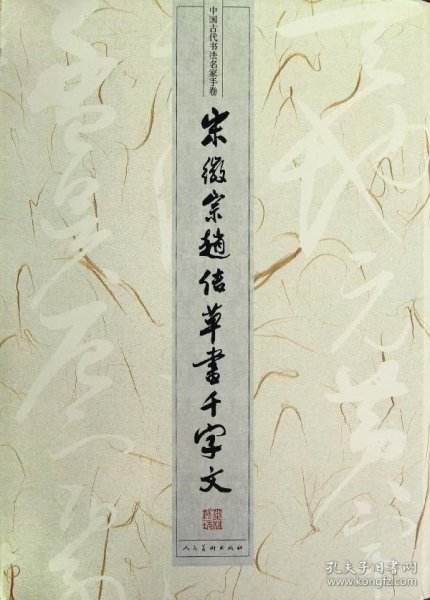 中国古代书法名家手卷
宋徽宗趙佶草書千字文
人民美术出版社
孔夫子旧书网
kongfz.com